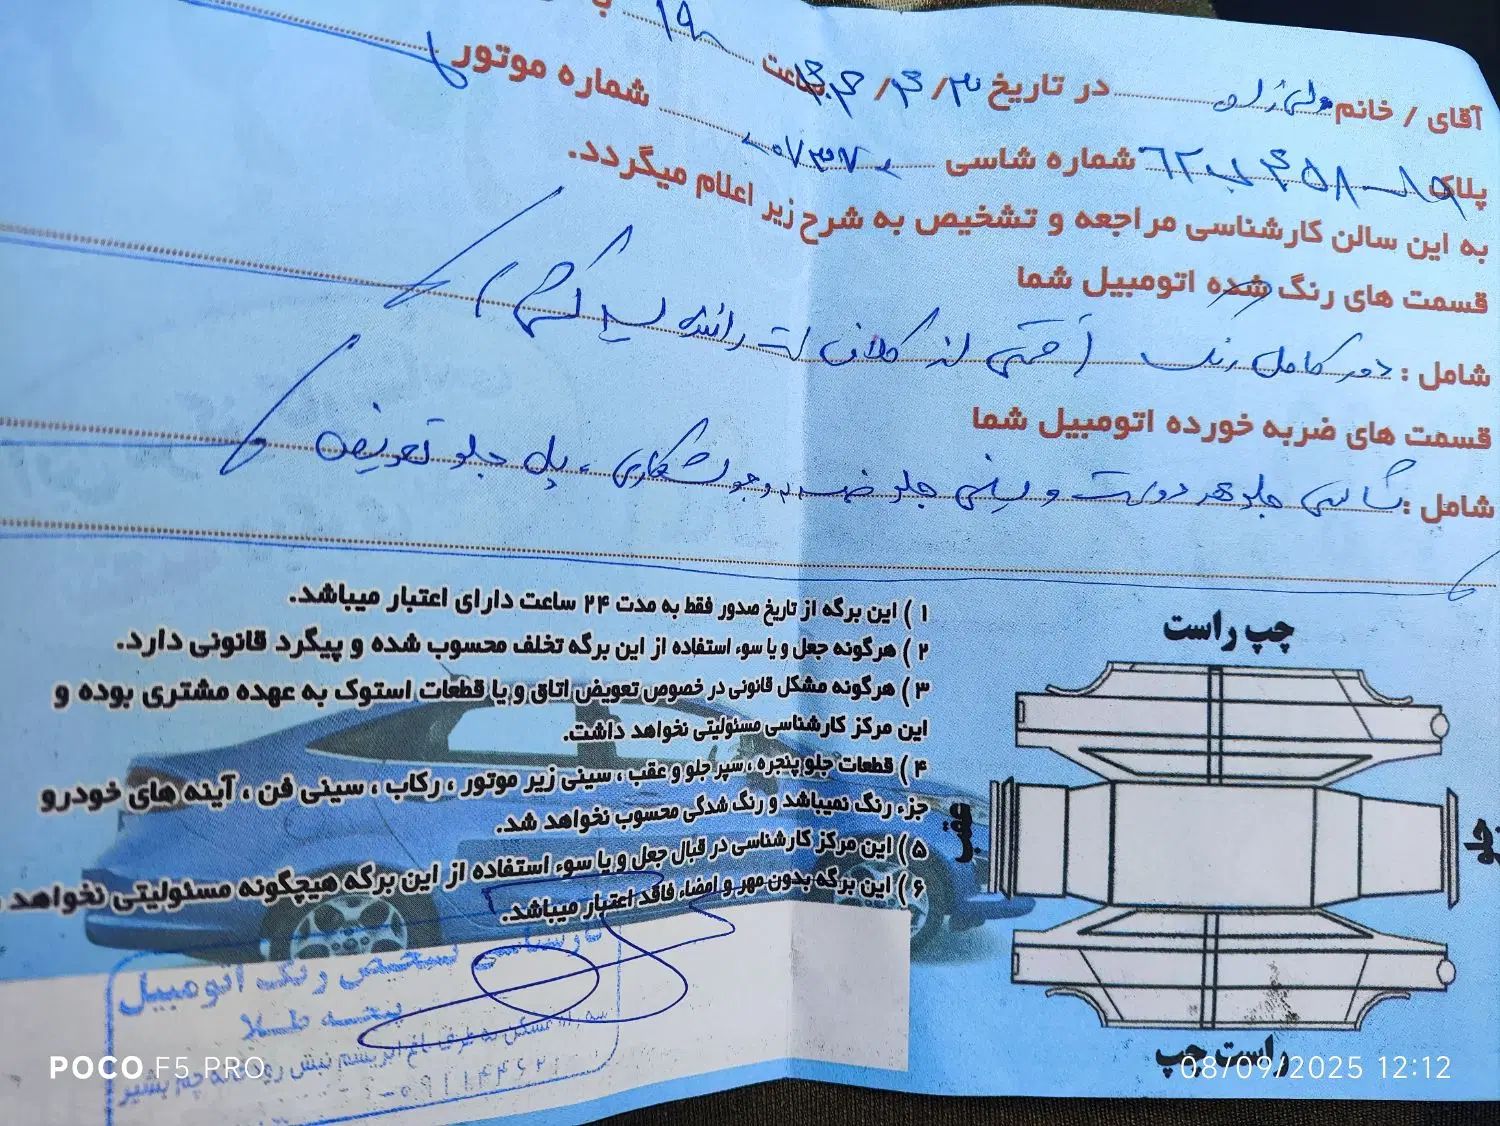 آقای / خانم ولی زاده در تاریخ ۱۴۰۴/۴/۳ ساعت ۱۹
پلاک ۶۲ ب ۴۵۸ - ۱۵ شماره شاسی شماره موتور
به این سالن کارشناسی مراجعه و تشخیص به شرح زیر اعلام میگردد.
قسمت های رنگ شده اتومبیل شما
شامل : دور کامل رنگ راننده
قسمت های ضربه خورده اتومبیل شما
شامل : شاسی جلو هر دو دست و سینی جلو ضربه و جوشکاری ، پل جلو تعویض
۱ ) این برگه از تاریخ صدور فقط به مدت ۲۴ ساعت دارای اعتبار میباشد.
۲ ) هرگونه جعل و یا سوء استفاده از این برگه تخلف محسوب شده و پیگرد قانونی دارد.
۳ ) هرگونه مشکل قانونی در خصوص تعویض اتاق و یا قطعات استوک به عهده مشتری بوده و
این مرکز کارشناسی مسئولیتی نخواهد داشت.
۴ ) قطعات جلو پنجره ، سپر جلو و عقب ، سینی زیر موتور ، رکاب ، سینی فن ، آینه های خودرو
جزء رنگ نمیباشد و رنگ شدگی محسوب نخواهد شد.
۵ ) این مرکز کارشناسی در قبال جعل و یا سوء استفاده از این برگه هیچگونه مسئولیتی نخواهد
۶ ) این برگه بدون مهر و امضاء فاقد اعتبار میباشد.
چپ راست
عقب
جلو
راست چپ
کارشناسی تشخیص رنگ اتومبیل
پنجه طلا
POCO F5 PRO
08/09/2025 12:12